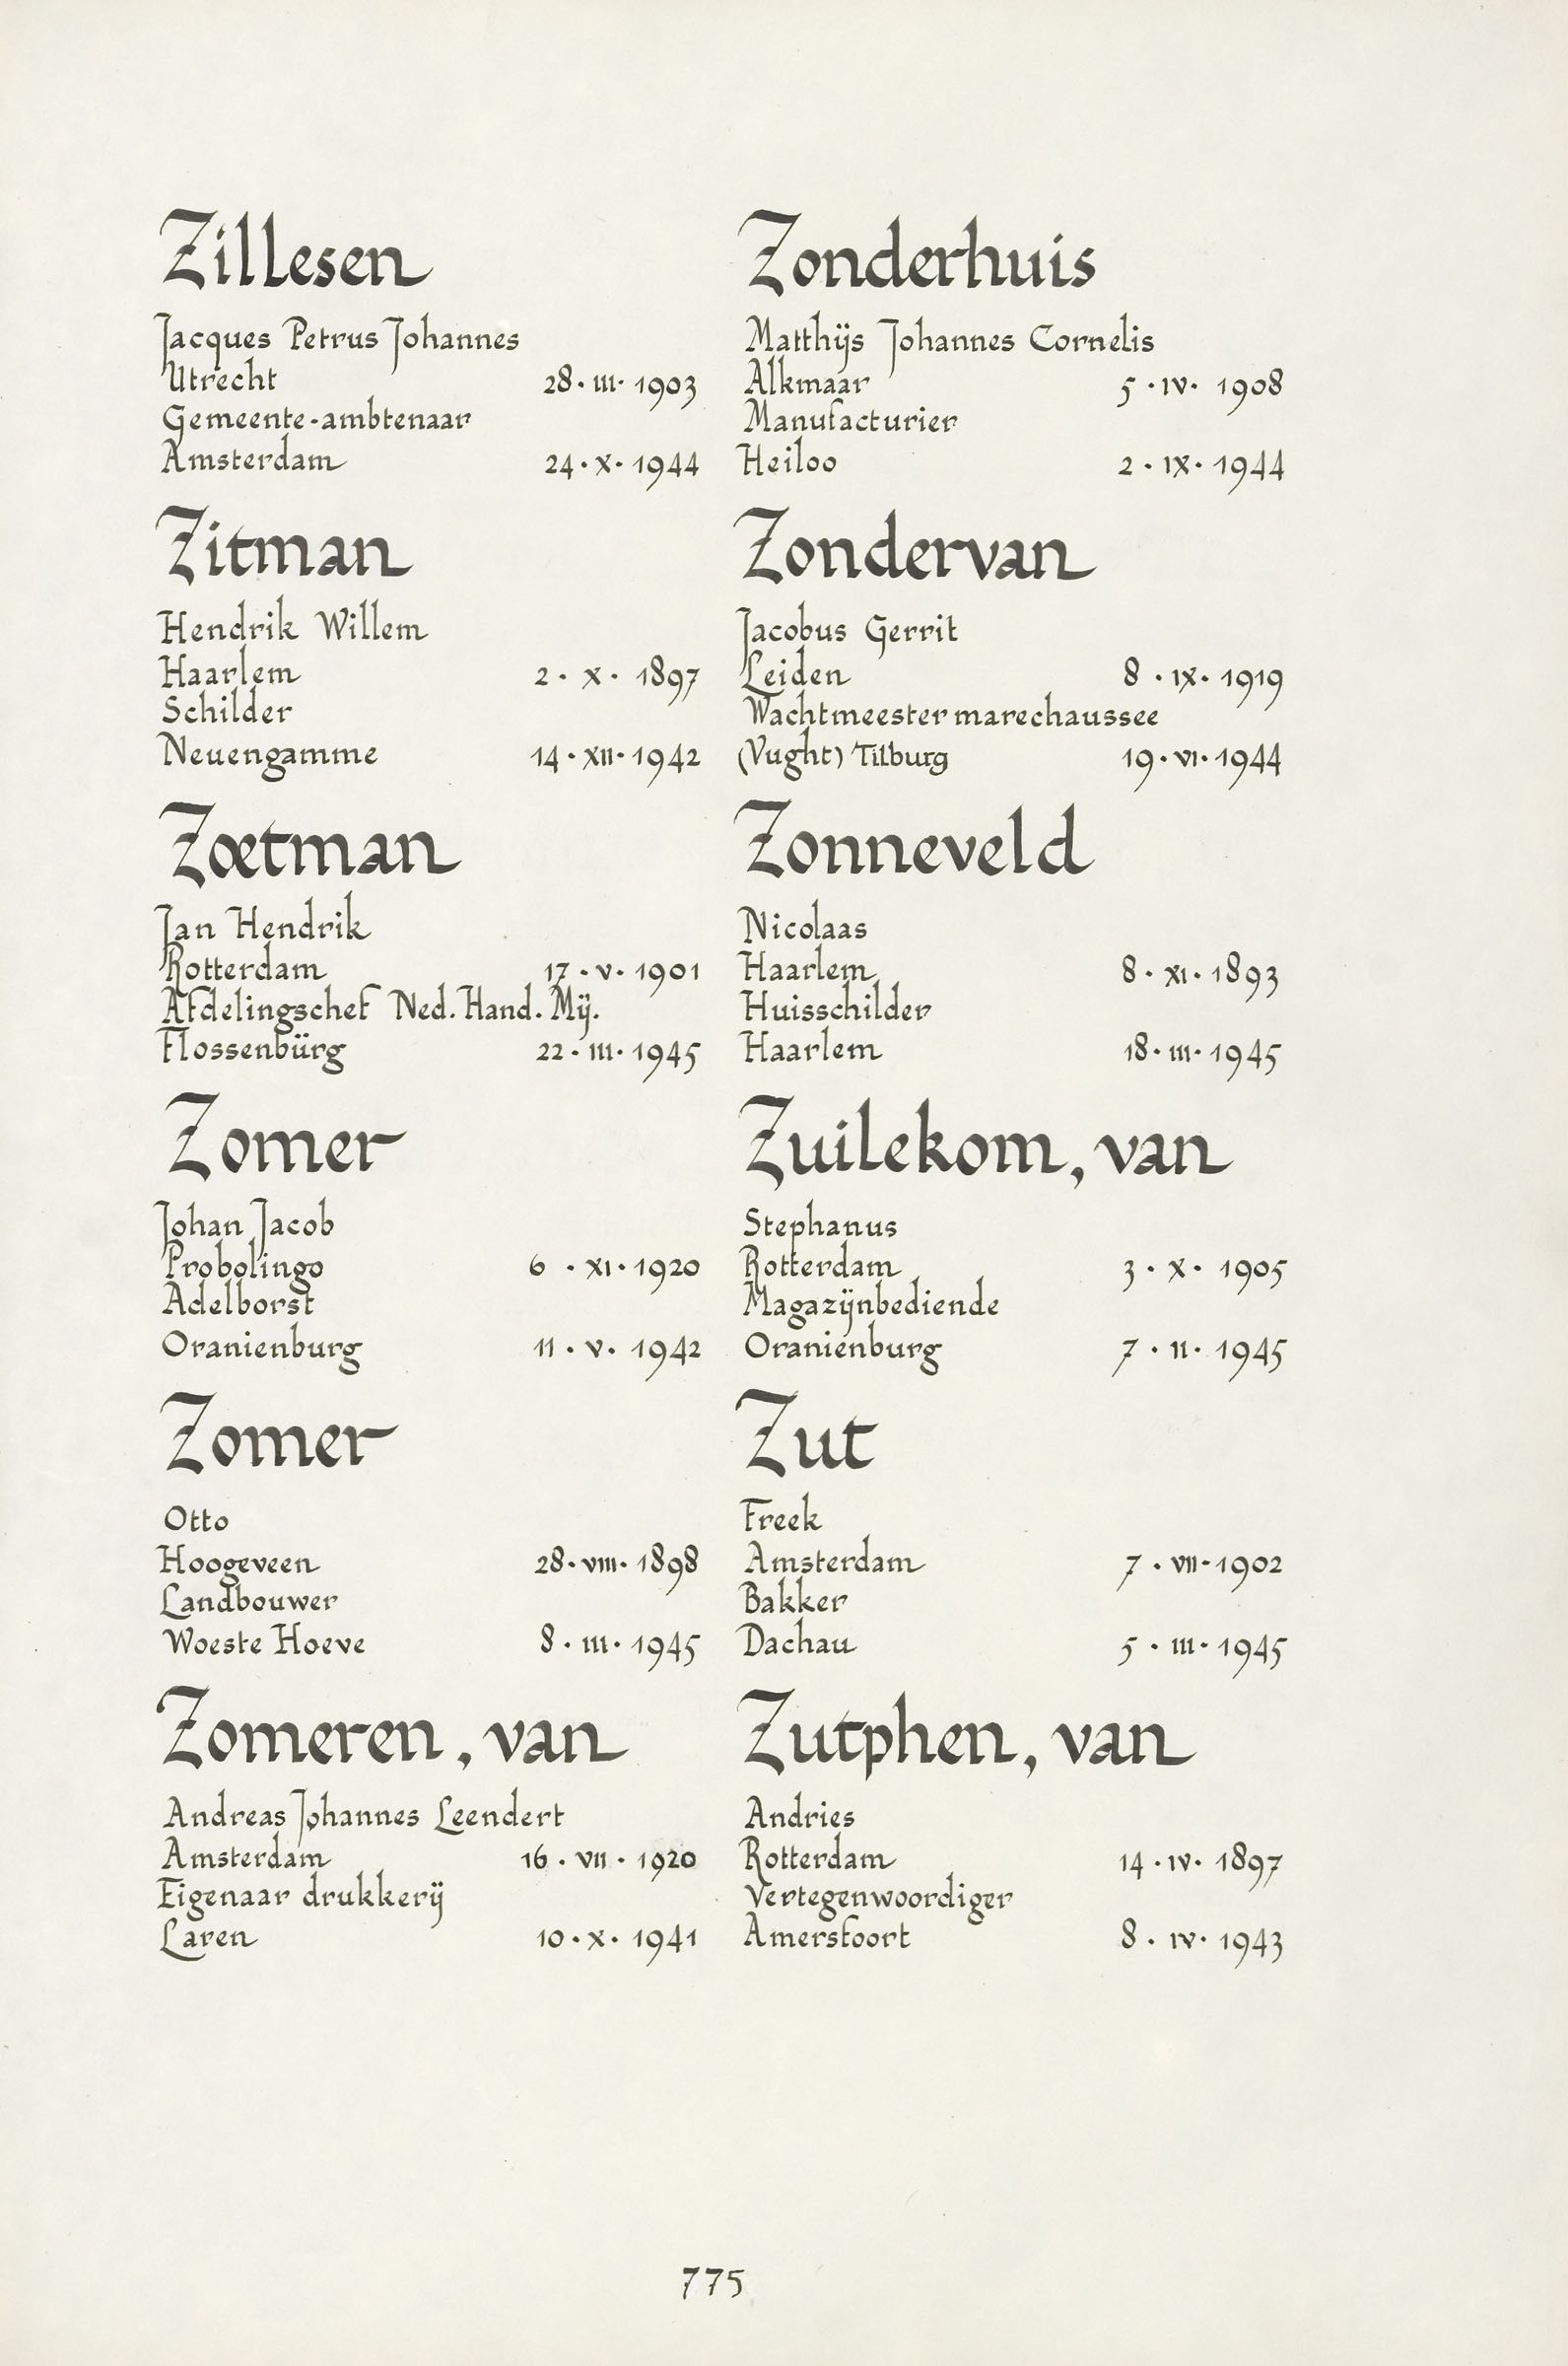 Zillesen
Jacques Petrus Johannes
Utrecht 28·III·1903
Gemeente-ambtenaar
Amsterdam 24·X·1944
Zitman
Hendrik Willem
Haarlem 2·X·1897
Schilder
Neuengamme 14·XII·1942
Zoetman
Jan Hendrik
Rotterdam 17·V·1901
Afdelingschef Ned. Hand. Mij.
Flossenbürg 22·III·1945
Zomer
Johan Jacob
Probolingo 6·XI·1920
Adelborst
Oranienburg 11·V·1942
Zomer
Otto
Hoogeveen 28·VIII·1898
Landbouwer
Woeste Hoeve 8·III·1945
Zomeren, van
Andreas Johannes Leendert
Amsterdam 16·VII·1920
Eigenaar drukkerij
Laren 10·X·1941
Zonderhuis
Matthijs Johannes Cornelis
Alkmaar 5·IV·1908
Manufacturier
Heiloo 2·IX·1944
Zondervan
Jacobus Gerrit
Leiden 8·IX·1919
Wachtmeester marechaussee
(Vught) Tilburg 19·VI·1944
Zonneveld
Nicolaas
Haarlem 8·XI·1893
Huisschilder
Haarlem 18·III·1945
Zuilekom, van
Stephanus
Rotterdam 3·X·1905
Magazijnbediende
Oranienburg 7·II·1945
Zut
Freek
Amsterdam 7·VII·1902
Bakker
Dachau 5·III·1945
Zutphen, van
Andries
Rotterdam 14·IV·1897
Vertegenwoordiger
Amersfoort 8·IV·1943
775